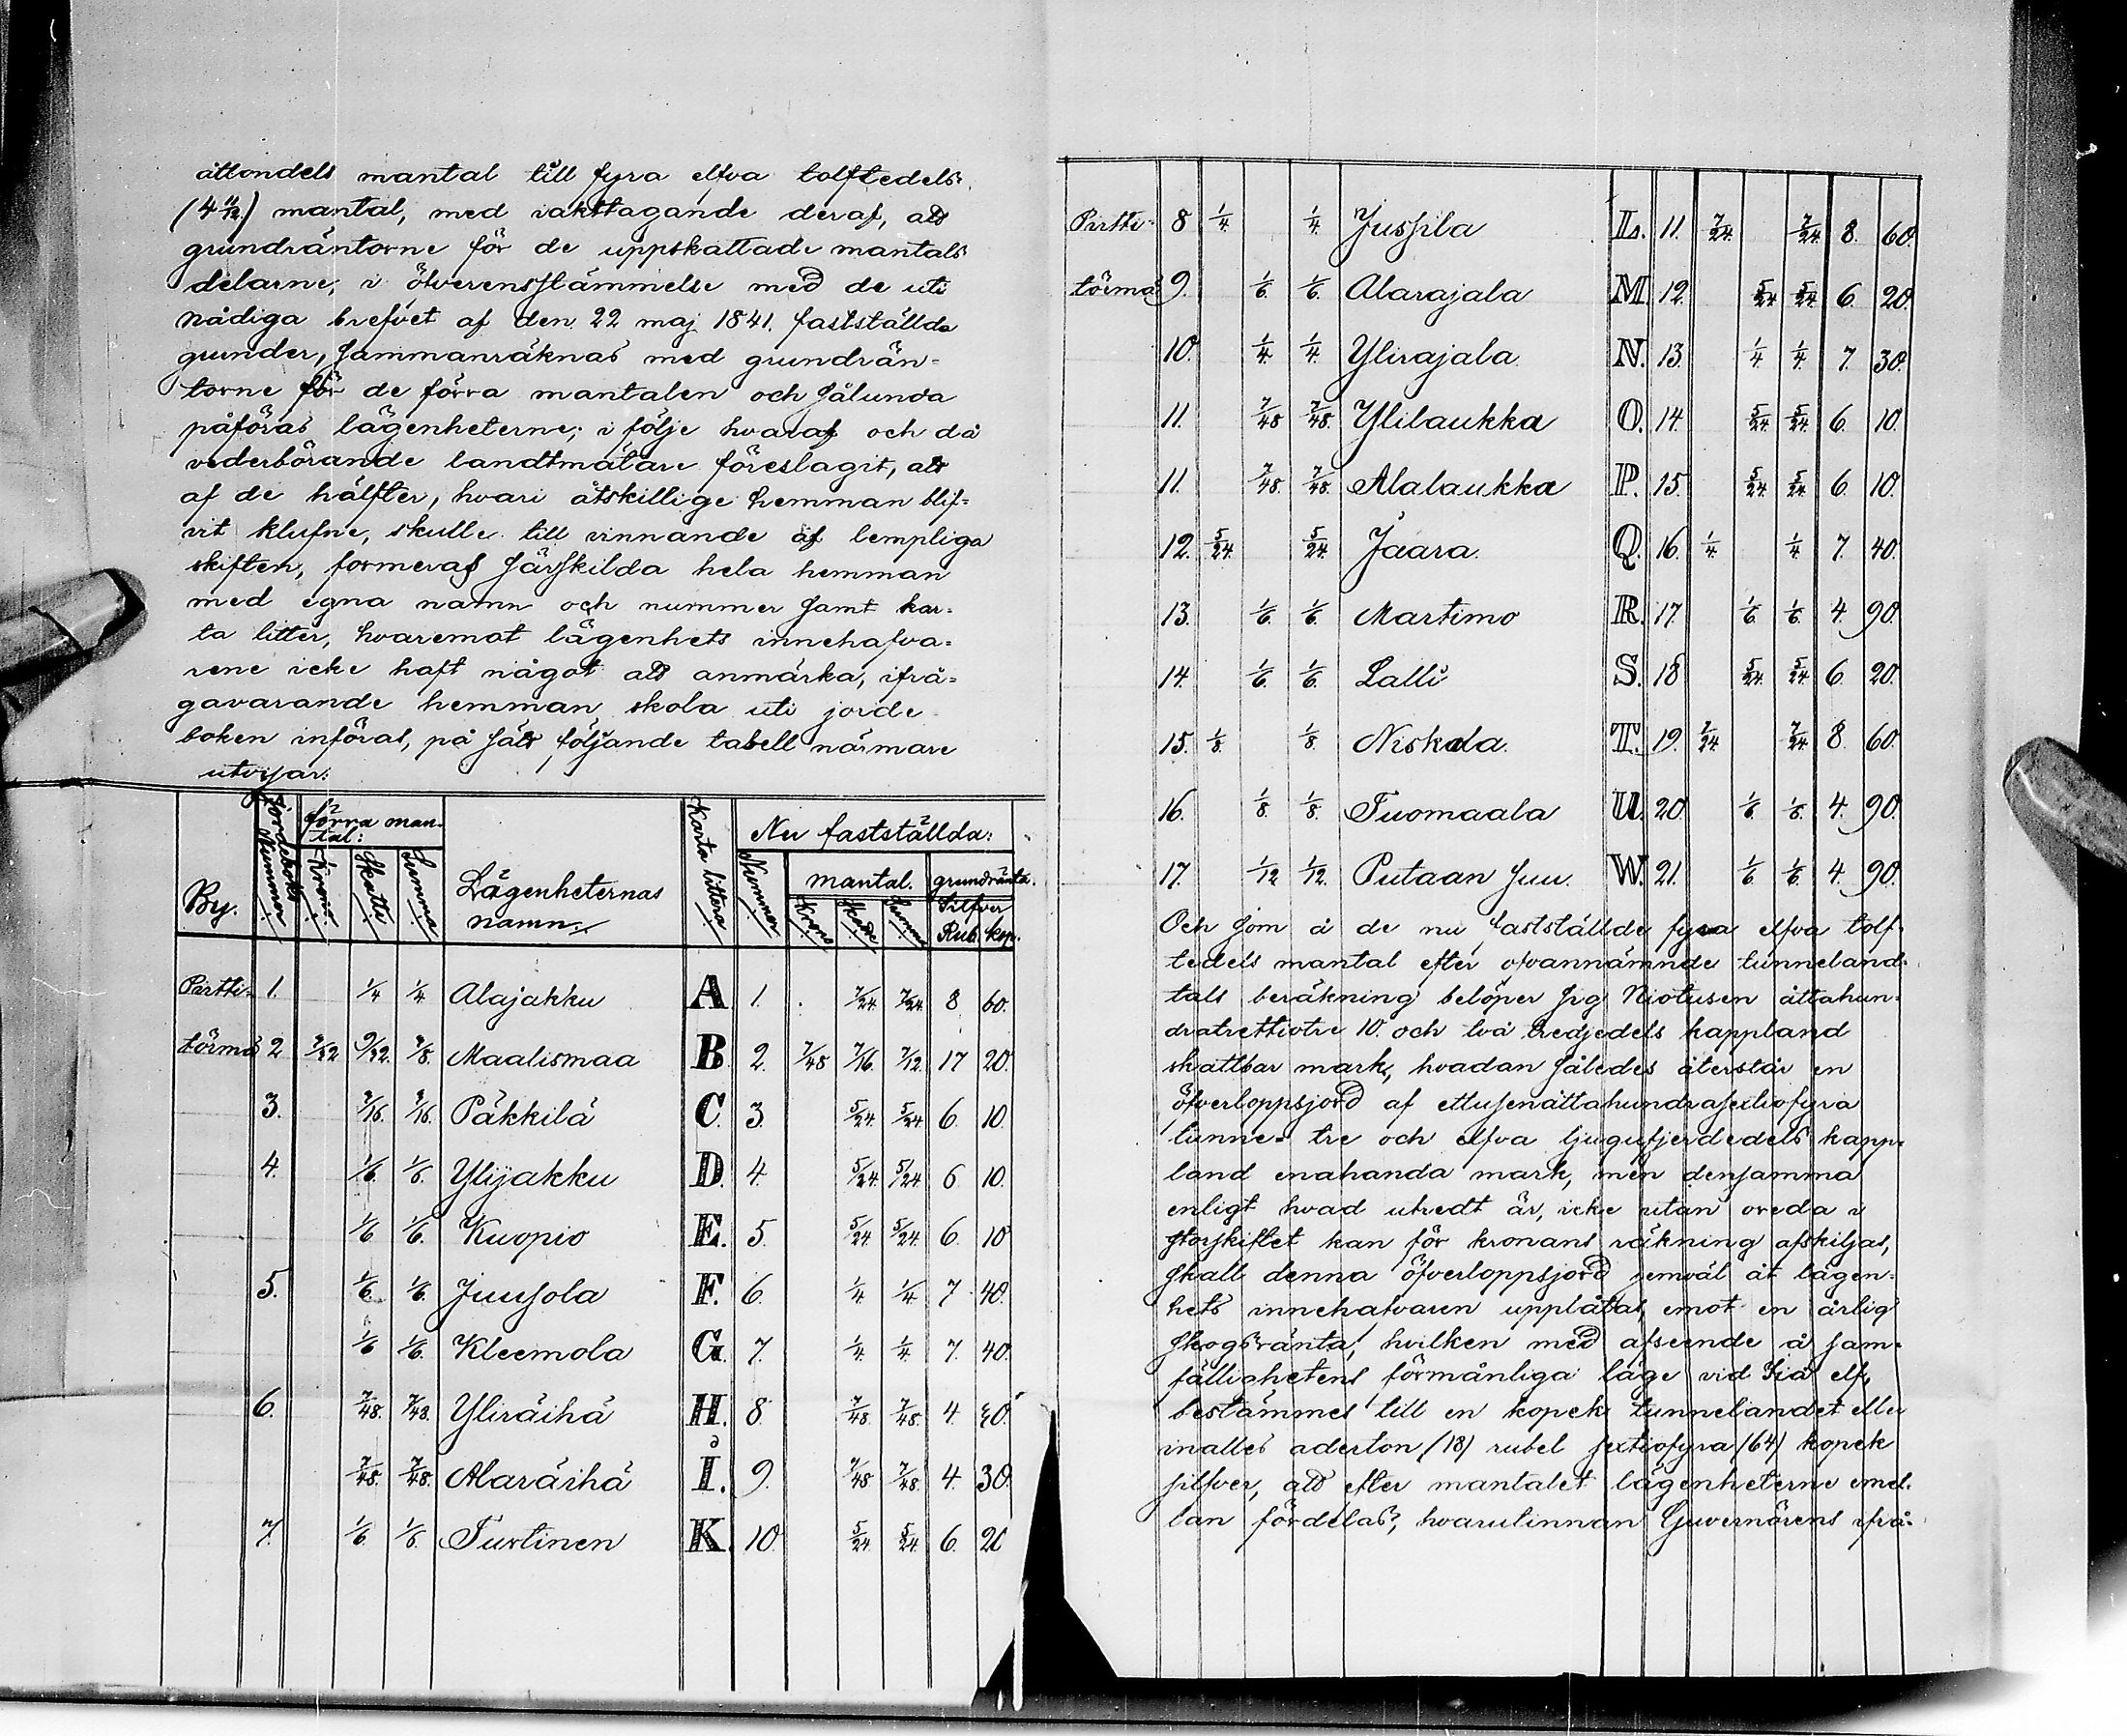 åttondels mantal till fyra elfva tolftedels
(4 11/12) mantal, med iakttagande deraf, att
grundräntorne för de uppskattade mantals
delarne, i öfverensstämmelse med de uti
nådiga brefvet af den 22 maj 1841. fastställda
grunder, sammanräknas med grundrän-
torne för de förra mantalen och sålunda
påföras lägenheterne; i följe hvaraf och då
vederbörande landtmätare föreslagit, att
af de hälfter, hvari åtskillige hemman blif-
vit klufne, skulle till vinnande af lempliga
skiften, formeras särskilda hela hemman
med egna namn och nummer samt kar-
ta litter, hvaremot lägenhets innehafva-
rene icke haft något att anmärka, ifrå-
gavarande hemman skola uti jorde
boken införas, på sätt, följande tabell närmare
utvisar:
By. Jordeboks Nummer förra man-tal: Krono Skatte Summa Lägenheternas namn. Karta littera Nu fastställda: Nummer mantal. Krono Skatte Summa grundränta. Silfver Rub. kop.
Pirtti- 1. 1/4 1/4 Alajakku A. 1. 7/24 7/24 8 60.
törmä 2 3/32 9/32 3/8. Maalismaa B. 2. 7/48 7/16 7/12. 17 20.
3. 3/16. 3/16. Päkkilä C. 3. 5/24 5/24 6. 10.
4. 1/6 1/6. Ylijakku D. 4. 5/24 5/24 6 10.
1/6 1/6. Kuopio E. 5. 5/24 5/24. 6. 10
5. 1/6. 1/6. Juusola F. 6. 1/4 1/4. 7 40.
1/6 1/6. Kleemola G. 7. 1/4. 1/4. 7. 40.
6. 7/48. 7/48. Yliräihä H. 8. 7/48 7/48. 4. 30.
7/48. 7/48. Alaräihä I. 9. 7/48 7/48. 4. 30.
7. 1/6. 1/6. Turtinen K. 10. 5/24 5/24. 6. 20
Pirtti- 8 1/4. 1/4. Jussila L. 11. 7/24. 7/24. 8. 60.
törmä 9. 1/6. 1/6. Alarajala M. 12. 5/24 5/24 6. 20.
10. 1/4. 1/4. Ylirajala. N. 13. 1/4 1/4. 7. 30.
11. 7/48 7/48. Ylilaukka O. 14. 5/24. 5/24. 6. 10.
11. 7/48. 7/48. Alalaukka P. 15. 5/24. 5/24. 6. 10.
12. 5/24. 5/24. Jaara. Q. 16. 1/4 1/4 7. 40.
13. 1/6. 1/6. Martimo R. 17. 1/6. 1/6. 4. 90.
14. 1/6. 1/6. Lalli S. 18 5/24. 5/24. 6. 20.
15. 1/8. 1/8. Niskala. T. 19. 7/24 7/24 8. 60.
16. 1/8. 1/8. Tuomaala U. 20. 1/6. 1/6. 4. 90.
17. 1/12 1/12. Putaan Suu. W. 21. 1/6. 1/6. 4. 90.
Och som å de nu fastställde fyra elfva tolf-
tedels mantal efter ofvannämnde tunneland-
tals beräkning belöper sig Niotusen åttahun-
dratrettiotre 10. och två tredjedels kappland
skattbar mark, hvadan således återstår en
öfverloppsjord af ettusenåttahundrasextiofyra
tunne- tre och elfva tjugufjerdedels kapp-
land enahanda mark, men densamma
enligt hvad utredt är, icke utan oreda i
storskiftet kan för kronans räkning afskiljas,
skall denna öfverloppsjord jemväl åt lägen-
hets innehafvaren upplåtas, emot en årlig
skogsränta, hvilken med afseende å sam-
fällighetens förmånliga läge vid Kia elf,
bestämmes till en kopek tunnelandet eller
inalles aderton (18) rubel sextiofyra (64) kopek
silfver, att efter mantalet lägenheterne emel-
lan fördelas, hvarutinnan Guvernörens ifrå-